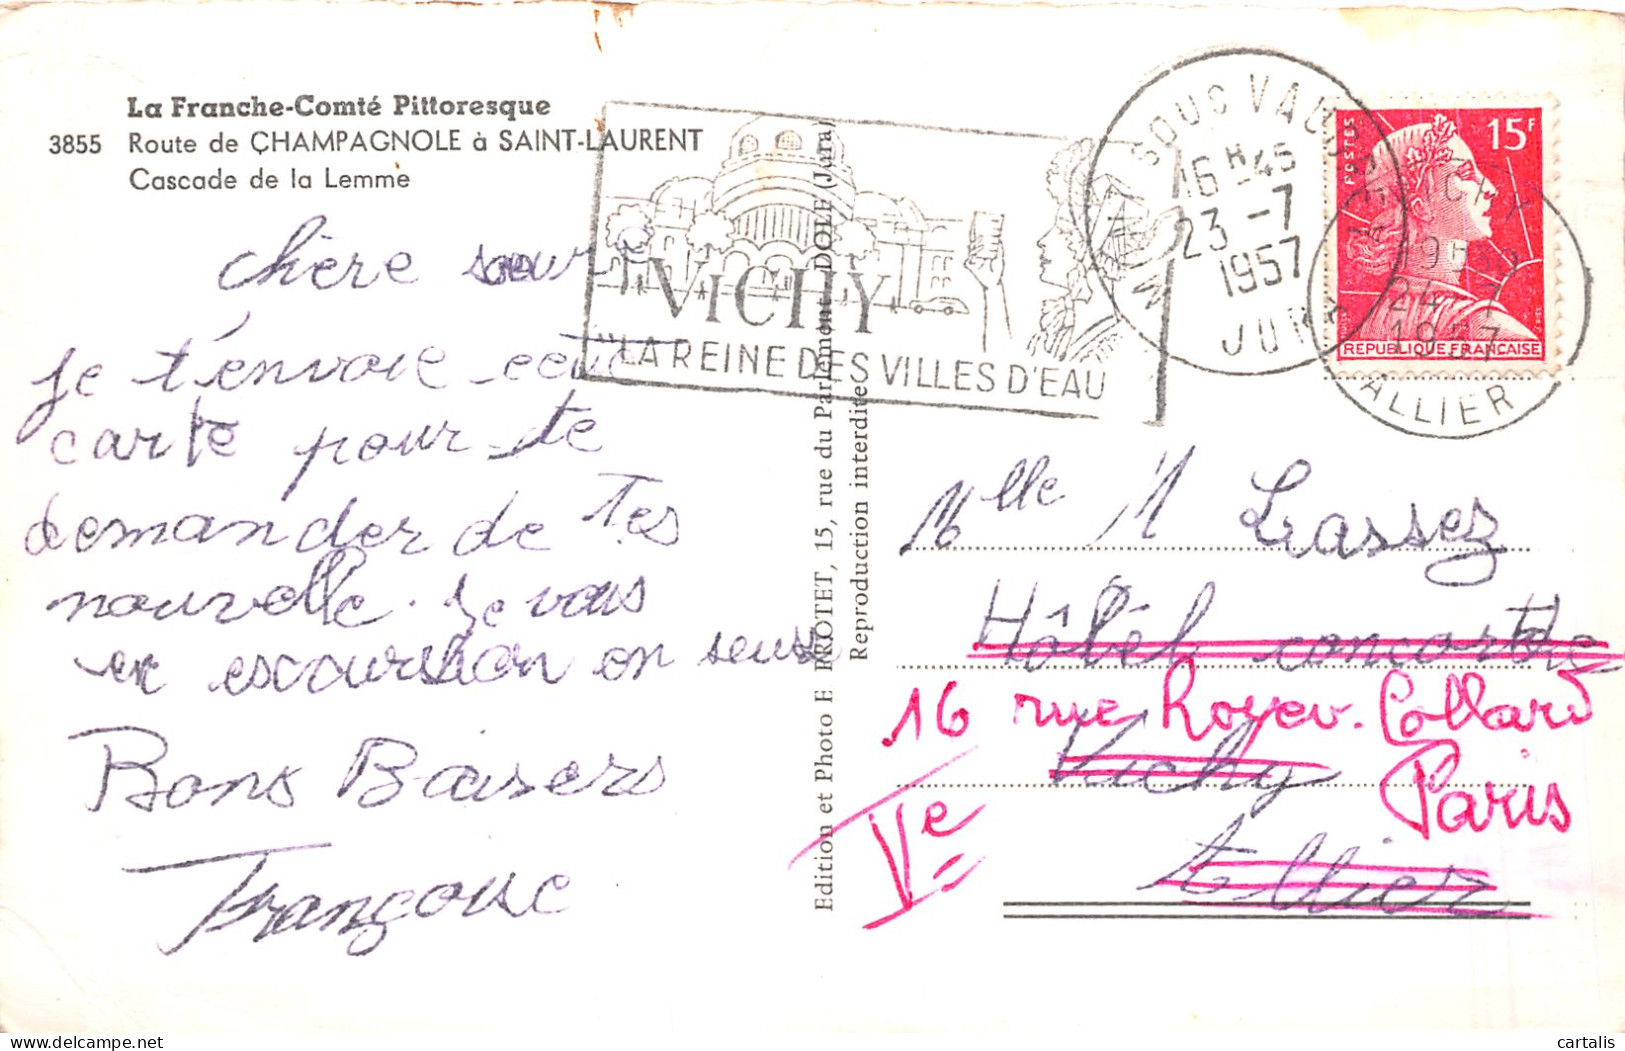 La Franche-Comté Pittoresque
3855 Route de CHAMPAGNOLE à SAINT-LAURENT
Cascade de la Lemme
chère soeur
je t'envoie cette
carte pour te
demander de Tes
nouvelle. Je vais
en excursion on seuse
Bons Baisers
Françoise
Edition et Photo E PROTET, 15, rue du Parlement DOLE (Jura)
Reproduction interdite
VICHY
"LA REINE DES VILLES D'EAU
SOUS VAUDREY
16 H 45
23 - 7
1957
JURA
POSTES
15F
REPUBLIQUE FRANCAISE
24 7
1957
ALLIER
Mlle M Lassez
Hôtel concorde
16 rue Royer-Collard
Vichy
Paris
Ve
Allier
cartalis